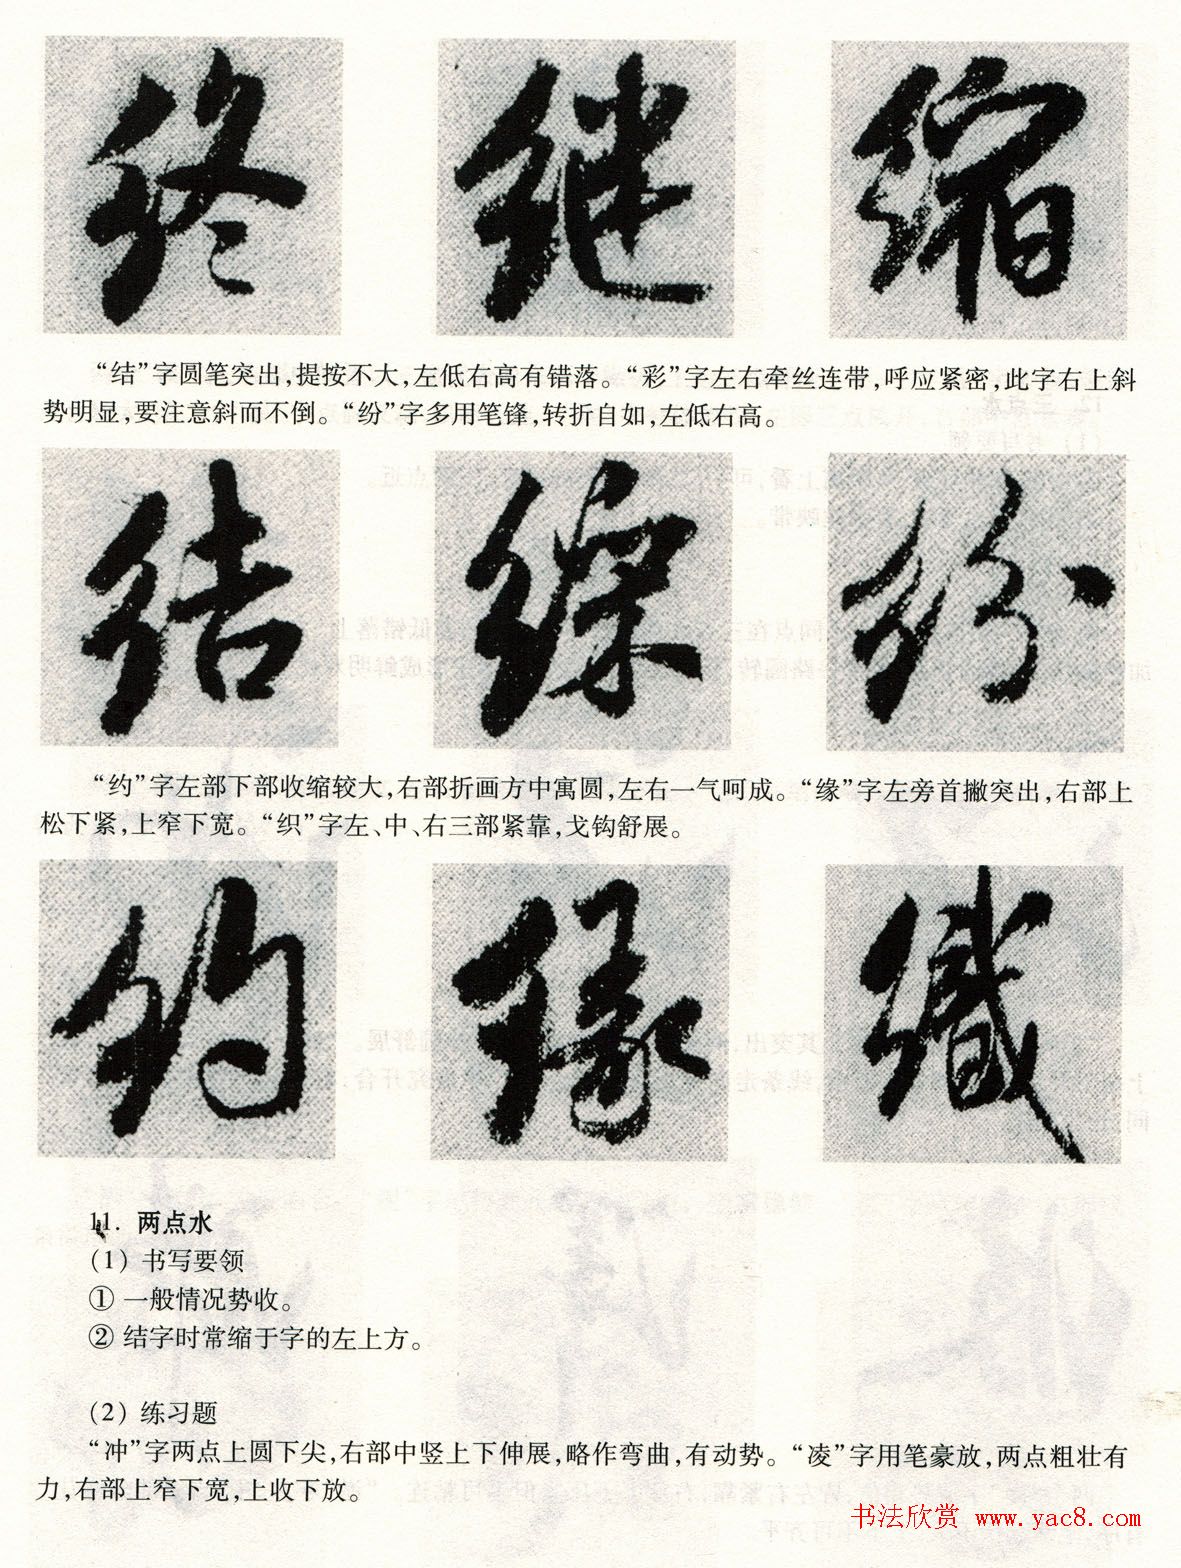 终 继 缩
“结”字圆笔突出,提按不大,左低右高有错落。“彩”字左右牵丝连带,呼应紧密,此字右上斜
势明显,要注意斜而不倒。“纷”字多用笔锋,转折自如,左低右高。
结 彩 纷
“约”字左部下部收缩较大,右部折画方中寓圆,左右一气呵成。“缘”字左旁首撇突出,右部上
松下紧,上窄下宽。“织”字左、中、右三部紧靠,戈钩舒展。
约 缘 織
11. 两点水
(1) 书写要领
① 一般情况势收。
② 结字时常缩于字的左上方。
(2) 练习题
“冲”字两点上圆下尖,右部中竖上下伸展,略作弯曲,有动势。“凌”字用笔豪放,两点粗壮有
力,右部上窄下宽,上收下放。
书法欣赏 www.yac8.com